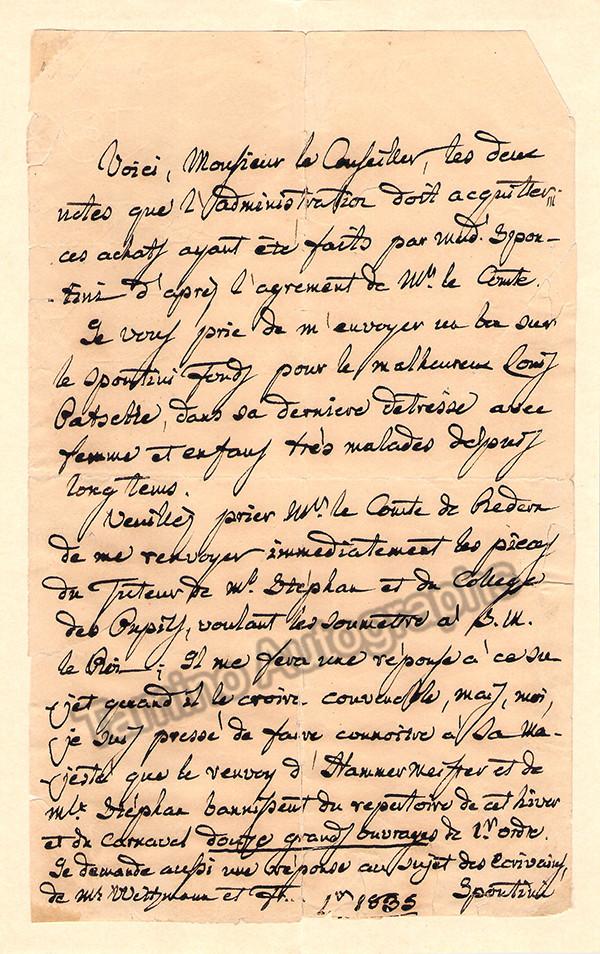 Voici, Monsieur le Conseiller, les deux
notes que l'administration doit acquitter,
ces achats ayant été faits par Mad. Spon-
tini d'après l'agrement de Mr. le Comte.
Je vous prie de m'envoyer un bon sur
le Spontini Fonds pour le malheureux Louis
dans sa derniere détresse avec
femme et enfans très malades depuis
long tems.
Veuillez prier Mr. le Comte de Redern
de me renvoyer immediatement les pieces
du Tuteur de Mr. Stéphan et du College
des Pupils, voulant les soumettre à S. M.
le Roi; Il me fera une réponse à ce su-
jet quand il le croira convenable, mais, moi,
je suis pressé de faire connoitre à Sa Ma-
jesté que le renvoy d'Hammermeister et de
Mlle Stéphan bannissent du repertoire de cet hiver
et du Carnaval douze grands ouvrages de 1r. ordre.
Je demande aussi une réponse au sujet des Ecrivains,
de Mr et
1r 1835 Spontini
Tamino Autographs